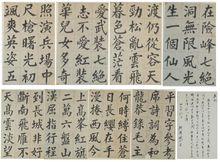 在險峰七絕
洞無限風光
生一個仙人
渡仍從容天
勁松亂雲飛
暮色蒼茫看
愛武裝七絕
志不愛紅裝
華兒女多奇
照演兵場中
尺槍曙光初
颯爽英姿五
平習字參考
席詩詞為和
龍 主
何時縛住蒼
日長纓在手
漫捲西風今
上高峰紅旗
二萬六盤山
漢屈指行程
到長城非好
斷南飛雁不
天高雲淡望